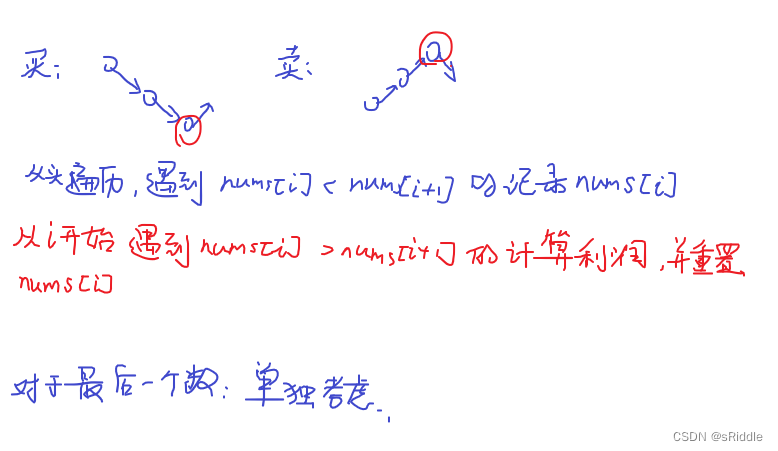 买： 卖：
从头遍历，遇到 nums[i] < nums[i+1] 的记录 nums[i]
从 i 开始 遇到 nums[i] > nums[i+1] 的计算利润，并重置
nums[i]
对于最后一个数：单独考虑.
CSDN @sRiddle